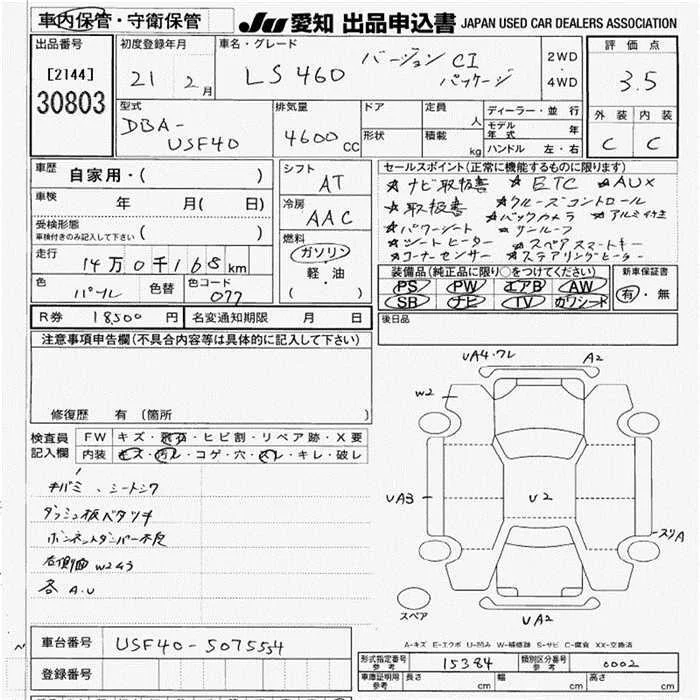 車内保管・守衛保管
JU 愛知 出品申込書 JAPAN USED CAR DEALERS ASSOCIATION
出品番号
[2144]
30803
初度登録年月
21 2月
車名・グレード
LS460 バージョン CI パッケージ
2WD
・
4WD
評価点
3.5
外装 内装
C C
型式
DBA-
USF40
排気量
4600cc
ドア
形状
定員 人
積載 kg
ディーラー・並行
モデル年式 年
ハンドル 左・右
車歴 自家用・( )
車検 年 月( 日)
受検形態
車検付きのみ記入して下さい ( )
走行 14万0千168km
色 パール 色替 色コード 077
シフト AT
冷房 AAC
燃料
ガソリン
・
軽・油
( )
セールスポイント(正常に機能するものに限ります)
☆ナビ取扱書 ☆ETC ☆AUX
☆取扱書 ☆クルーズコントロール
☆バックカメラ ☆アルミ付き
☆パワーシート ☆サンルーフ
☆シートヒーター ☆スペアスマートキー
☆コーナーセンサー ☆ステアリングヒーター
装備品(純正品に限り○をつけてください)
PS PW エアB AW
SR ナビ TV カワシート
新車保証書
有・無
R券 18,500円 名変通知期限 月 日
後日品
注意事項申告欄(不具合内容等は具体的に記入して下さい)
修復歴 有 (箇所 )
検査員記入欄
FW キズ・飛石・ヒビ割・リペア跡・X要
内装 キズ・汚レ・コゲ・穴・スレ・キレ・破レ
キバミ、シートシワ
ダッシュ板ベタツキ
ボンネットダンパー不良
右側面 W2 43
各 A.U
UA4・ワレ A2
W2
UA3
U2
スリA
UA2
スペア
A-キズ E-エクボ U-凹み W-補修跡 S-サビ C-腐食 XX-交換済
車台番号 USF40-5075554
登録番号
形式指定番号 参考 15384 類別区分番号 参考 0002
車庫証明用 参考 長さ cm 幅 cm 高さ cm